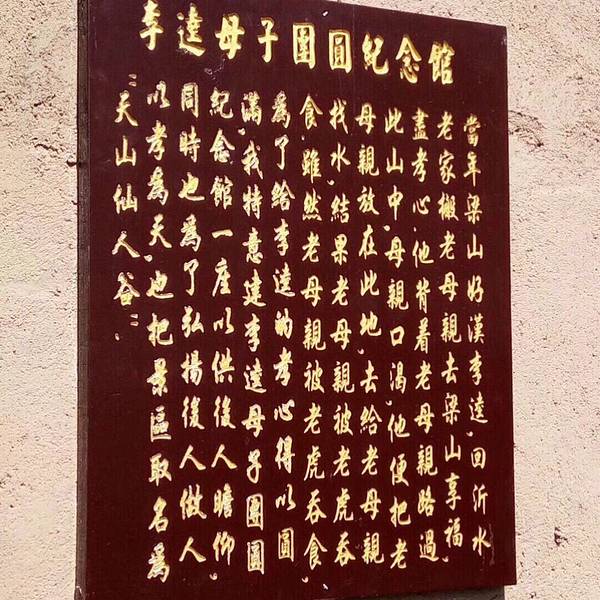 李逵母子團圓紀念館
當年梁山好漢李逵,回沂水
老家搬老母親去梁山享福,
盡孝心,他背着老母親路過
此山中,母親口渴,他便把老
母親放在此地,去給老母親
找水,結果老母親被老虎吞
食,雖然老母親被老虎吞食,
為了給李逵的孝心得以圓
滿,我特意建李逵母子團圓
紀念館一座以供後人瞻仰,
同時也為了弘揚後人做人
以孝為天,也把景區取名為
"天山仙人谷"。